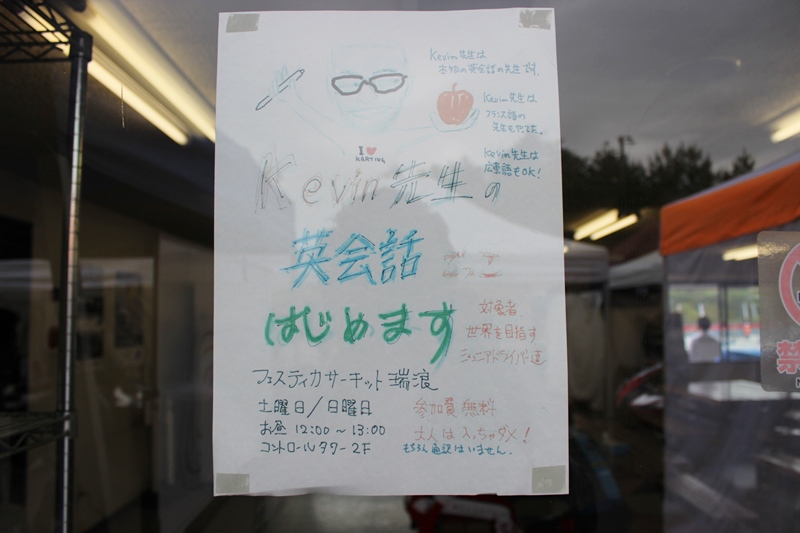 Kevin先生は
本物の英会話の先生です。
Kevin先生は
フランス語の
先生もやってます。
Kevin先生は
広東語もOK!
I ♥
KARTING
Kevin先生の
英会話
はじめます
対象者
世界を目指す
ジュニアドライバー達
フェスティカサーキット瑞浪
土曜日/日曜日
お昼 12:00～13:00
コントロールタワー2F
参加費 無料
大人は入っちゃダメ!
もちろん通訳はいません。
禁